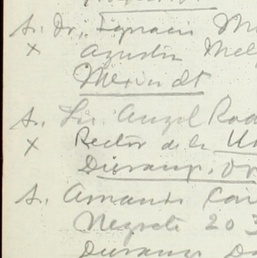 Sr. Dr. Ignacio M
x Agustin Mel

Sr. Lic. Angel Rod
x Rector de la Un
Durango, D
Sr. Armando Car
Negrete 203
Durango D